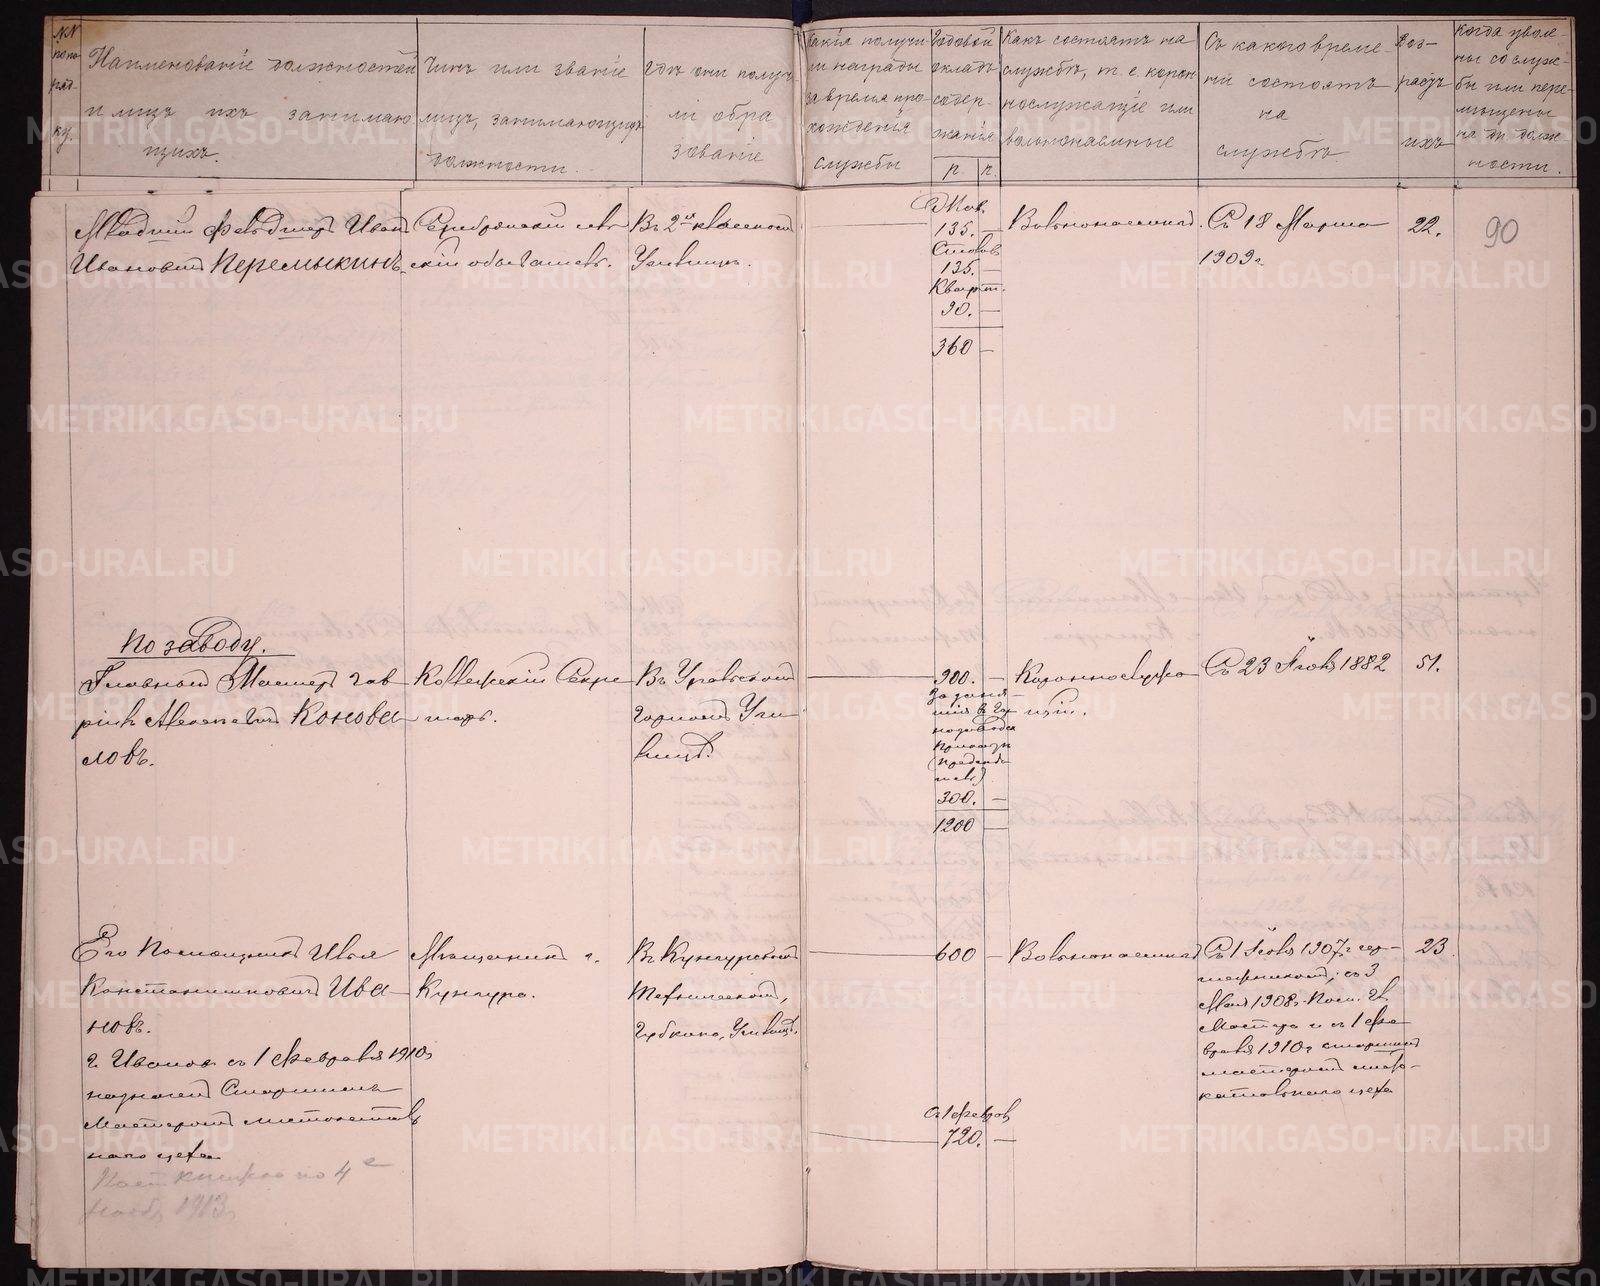 NN по порядку.
Наименованіе должностей
и лицъ ихъ занимаю
щихъ.
Чинъ или званіе
лицъ, занимающихъ
должности.
Гдѣ они получи
ли обра
зованіе
Какія получи-
ли награды
за время про-
хожденія
службы
Годовой
окладъ
содер-
жанія
р. к.
Какъ состоятъ на
службѣ, т. е. корон
нослужащіе или
вольнонаемные
Съ какого време-
ни состоятъ
на
службѣ.
Воз-
растъ
ихъ
Когда уволе-
ны со служ-
бы или пере-
мѣщены
на др. долж-
ности.
Младшій Фельдшеръ Иванъ
Ивановичъ Перемыкинъ
Серебрянскій сель
скій обыватель.
Въ 2хъ классномъ
Училищѣ.
Жалов.
135. —
Столов.
135. —
Квартт.
90. —
360 —
Вольнонаемный.
Съ 18 Марта
1909 г.
22.
90
По заводу.
Главный Мастеръ Гав
ріилъ Алексѣевичъ Конова
ловъ.
Коллежскій Секре
тарь.
Въ Уральскомъ
Горномъ Учи
лищѣ.
900. —
За заня-
тія в Го
300. —
1200 —
Коронослужа
щій.
Съ 23 Іюня 1882
51.
Его Помощникъ Илья
Константиновичъ Ива
новъ.
г. Ивановъ съ 1 Февраля 1910 г
назначенъ Старшимъ
Мастеромъ листокатал
наго цеха
4 г
1913 г
Мѣщанинъ г.
Кунгура.
Въ Кунгурскомъ
Техническомъ,
Губкина, Училищѣ.
600 —
Съ 1 Феврал
720. —
Вольнонаемный
Съ 1 Іюля 1907 г чер-
тежникомъ; съ 3
Мая 1908 г. Пом. Гл.
Мастера и съ 1 Фе
враля 1910 г старшимъ
мастеромъ листо-
катальнаго цеха
23
METRIKI.GASO-URAL.RU